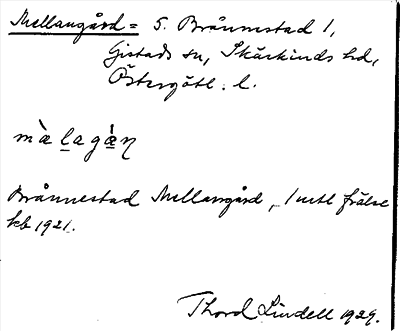 Mellangård = S. Brånnestad 1,
Gistads sn, Skärkinds hd,
Östergötl. l.
màlagàn
Brånnestad Mellangård, 1 mtl frälse
kb 1921.
Thord Lindell 1929.